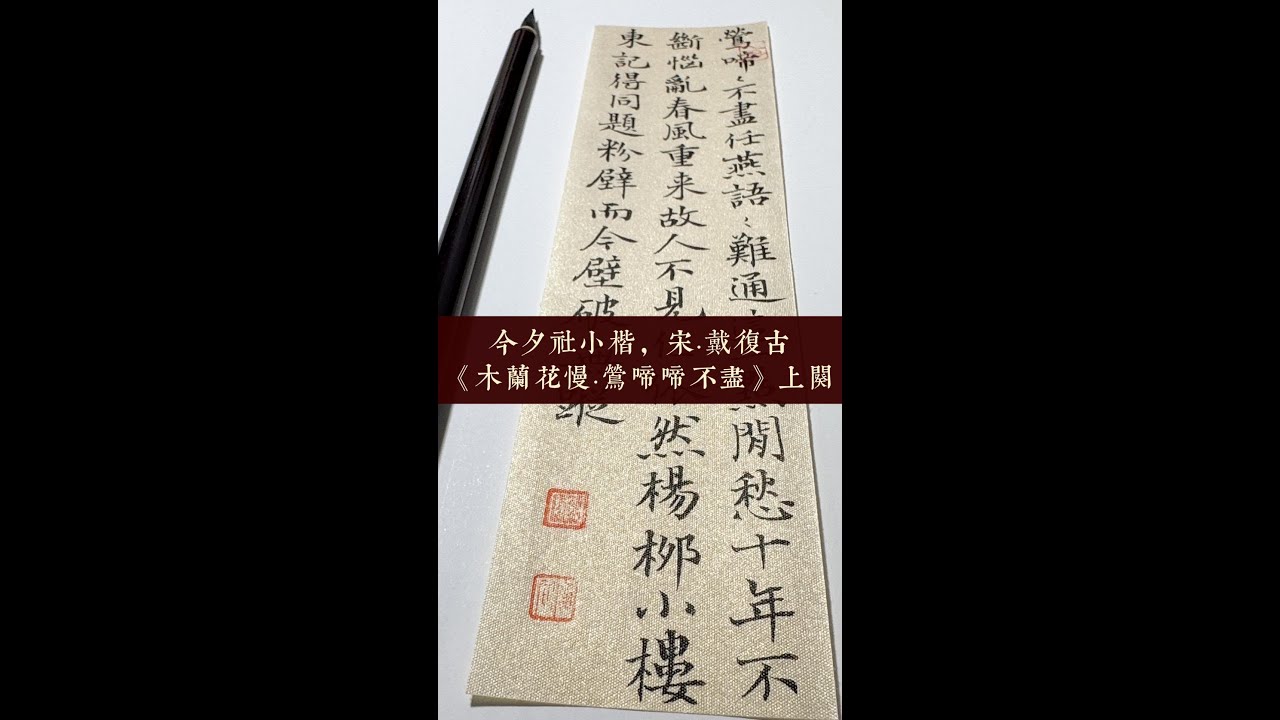 鶯啼〻不盡任燕語〻難通閒愁十年不
斷惱亂春風重来故人不見然楊柳小樓
東記得同題粉壁而今壁破蹤
今夕社小楷，宋·戴復古
《木蘭花慢·鶯啼啼不盡》上闋